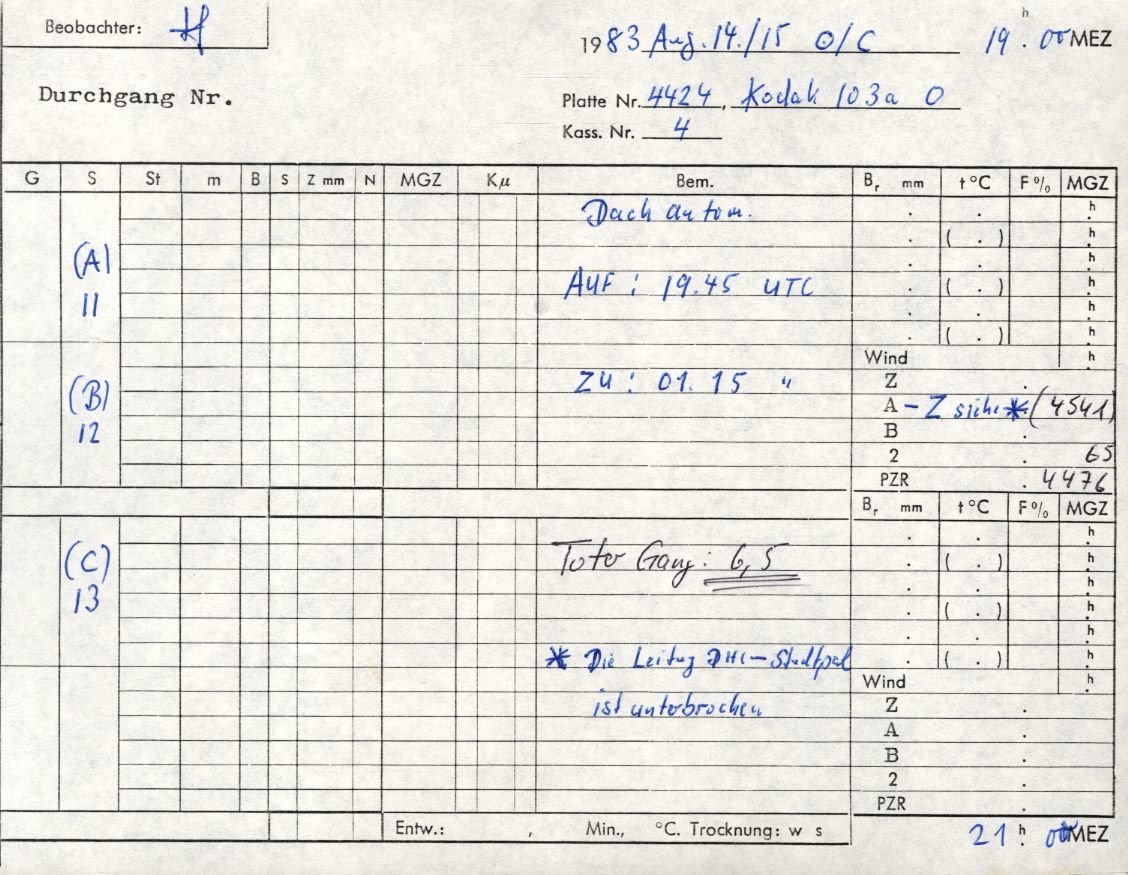 Beobachter: H
1983 Aug. 14./15 O/C 19 h . 00 MEZ
Durchgang Nr.
Platte Nr. 4424, Kodak 103a O
Kass. Nr. 4
G S St m B S Z mm N MGZ Kµ Bem. Br mm t °C F % MGZ
Dach autom. . . h .
. ( . ) h .
(A) . . h .
11 AUF : 19.45 UTC . ( . ) h .
. . h .
. ( . ) h .
Wind h .
(B) ZU : 01.15 " Z .
A – Z siehe * (4541)
12 B .
2 . 65
PZR . 4476
Br mm t °C F % MGZ
. . h .
(C) Toter Gang: 6,5 . ( . ) h .
13 . . h .
. ( . ) h .
. . h .
* Die Leitug DHI – . ( . ) h .
Wind h .
ist unterbrochen Z .
A .
B .
2 .
PZR .
Entw.: , Min., °C. Trocknung: w s
21 h . 00 MEZ